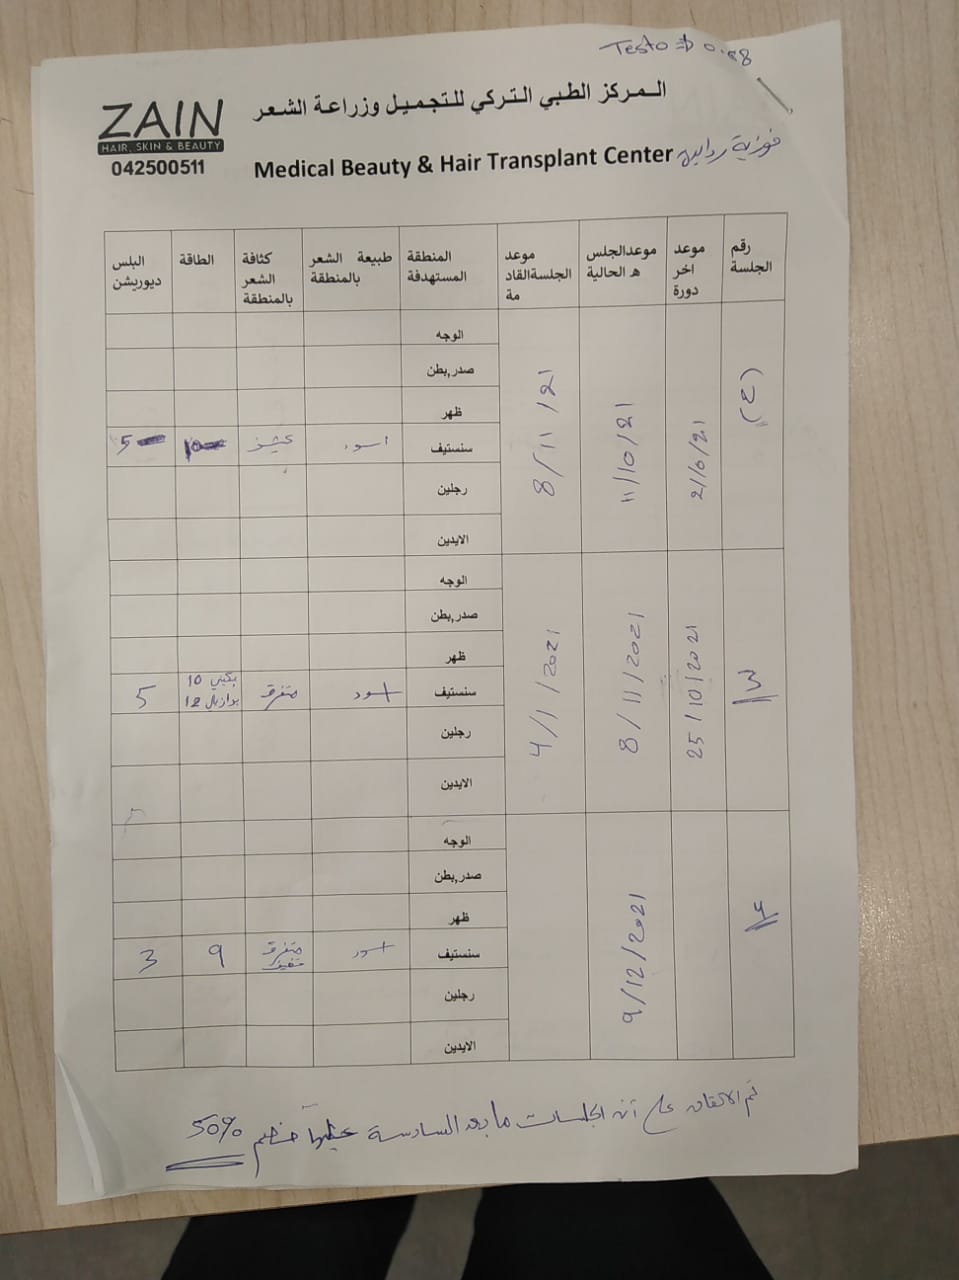 Testo => 0.88
ZAIN
HAIR, SKIN & BEAUTY
042500511
المركز الطبي التركي للتجميل وزراعة الشعر
Medical Beauty & Hair Transplant Center
فوزية
رقم الجلسة
موعد اخر دورة
موعدالجلس ه الحالية
موعد الجلسةالقاد مة
المنطقة المستهدفة
طبيعة الشعر بالمنطقة
كثافة الشعر بالمنطقة
الطاقة
البلس ديوريشن
21/6/21
11/10/21
8/11/21
الوجه
صدر,بطن
ظهر
سنستيف اسود 10 5
رجلين
الايدين
٣
25/10/2021
8/11/2021
4/1/2021
الوجه
صدر,بطن
ظهر
سنستيف اسود متفرق بكيني 10 12 5
رجلين
الايدين
٤
9/12/2021
الوجه
صدر,بطن
ظهر
سنستيف اسود متفرق خفيف 9 3
رجلين
الايدين
تم الاتفاق على أن الجلسات ما بعد السادسة عليها خصم 50%